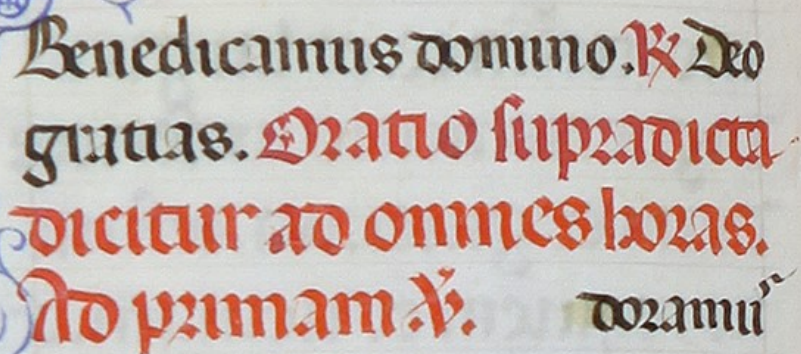 Benedicamus domino. ℟ Deo
gratias. Oratio supradicta
dicitur ad omnes horas.
Ad primam. ℣. doramus